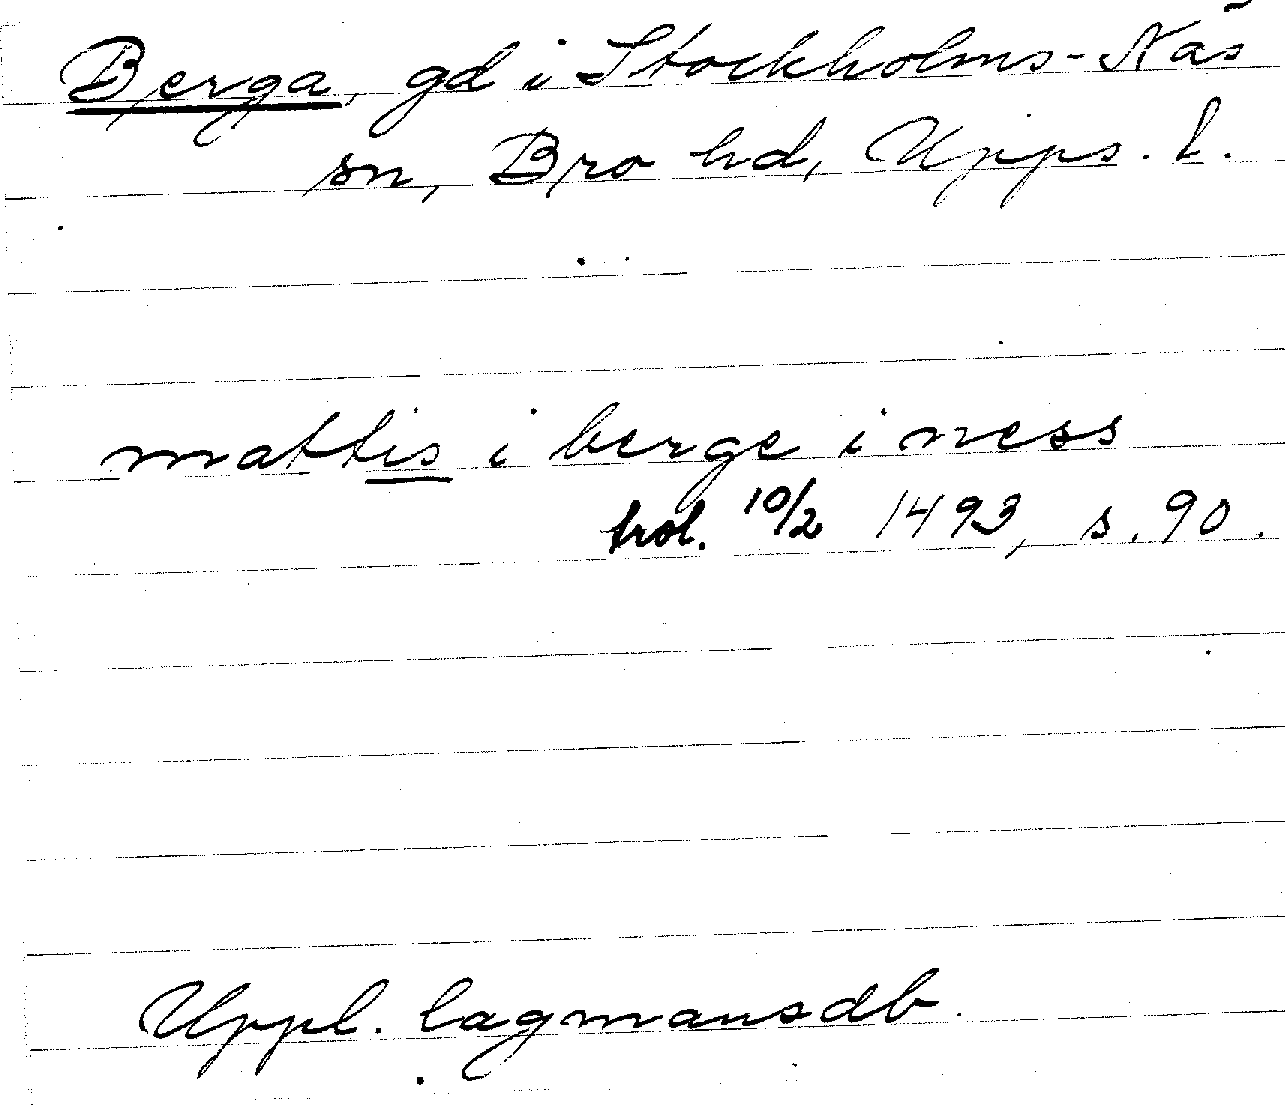 Berga, gd i Stockholms-Näs
sn, Bro hd, Upps. l.
mattis i berge i ness
trol. 10/2 1493, s. 90.
Uppl. lagmansdb.